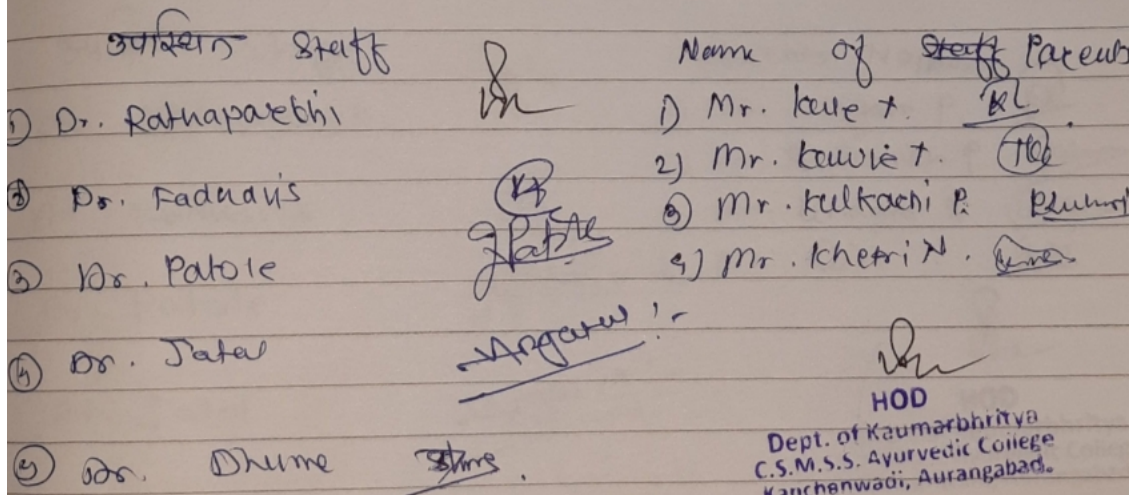 उपस्थित Staff
1) Dr. Ratnaparkhi
2) Dr. Fadnavis
3) Dr. Patole
4) Dr. Jatal
5) Dr. Dhume
Name of Staff Parents
1) Mr. kale t.
2) Mr. t.
3) Mr. kulkarni P.
4) Mr. Khetri N.
HOD
Dept. of Kaumarbhritya
C.S.M.S.S. Ayurvedic College
Kanchanwadi, Aurangabad.